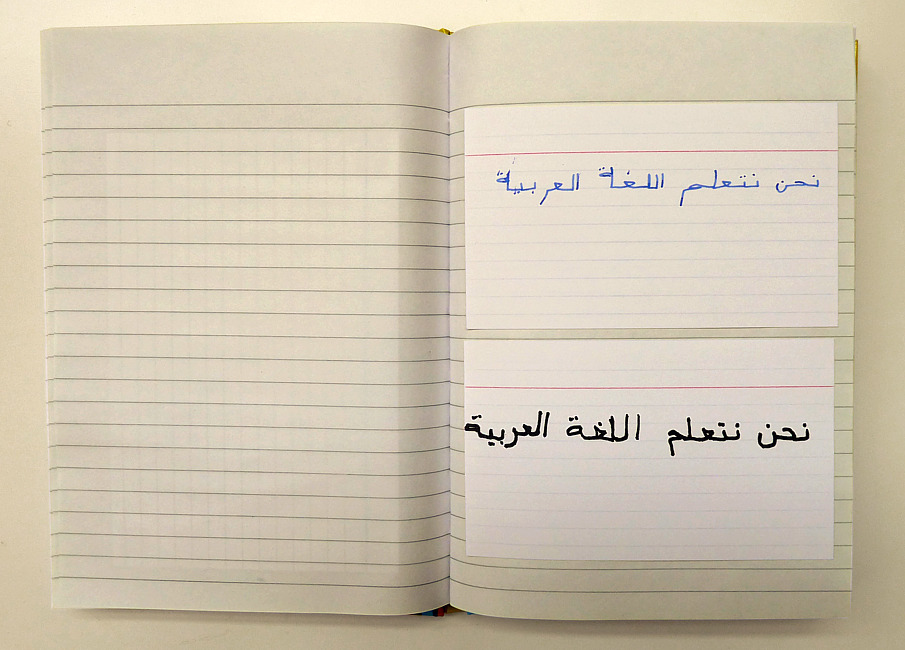 نحن نتعلم اللغة العربية
نحن نتعلم اللغة العربية